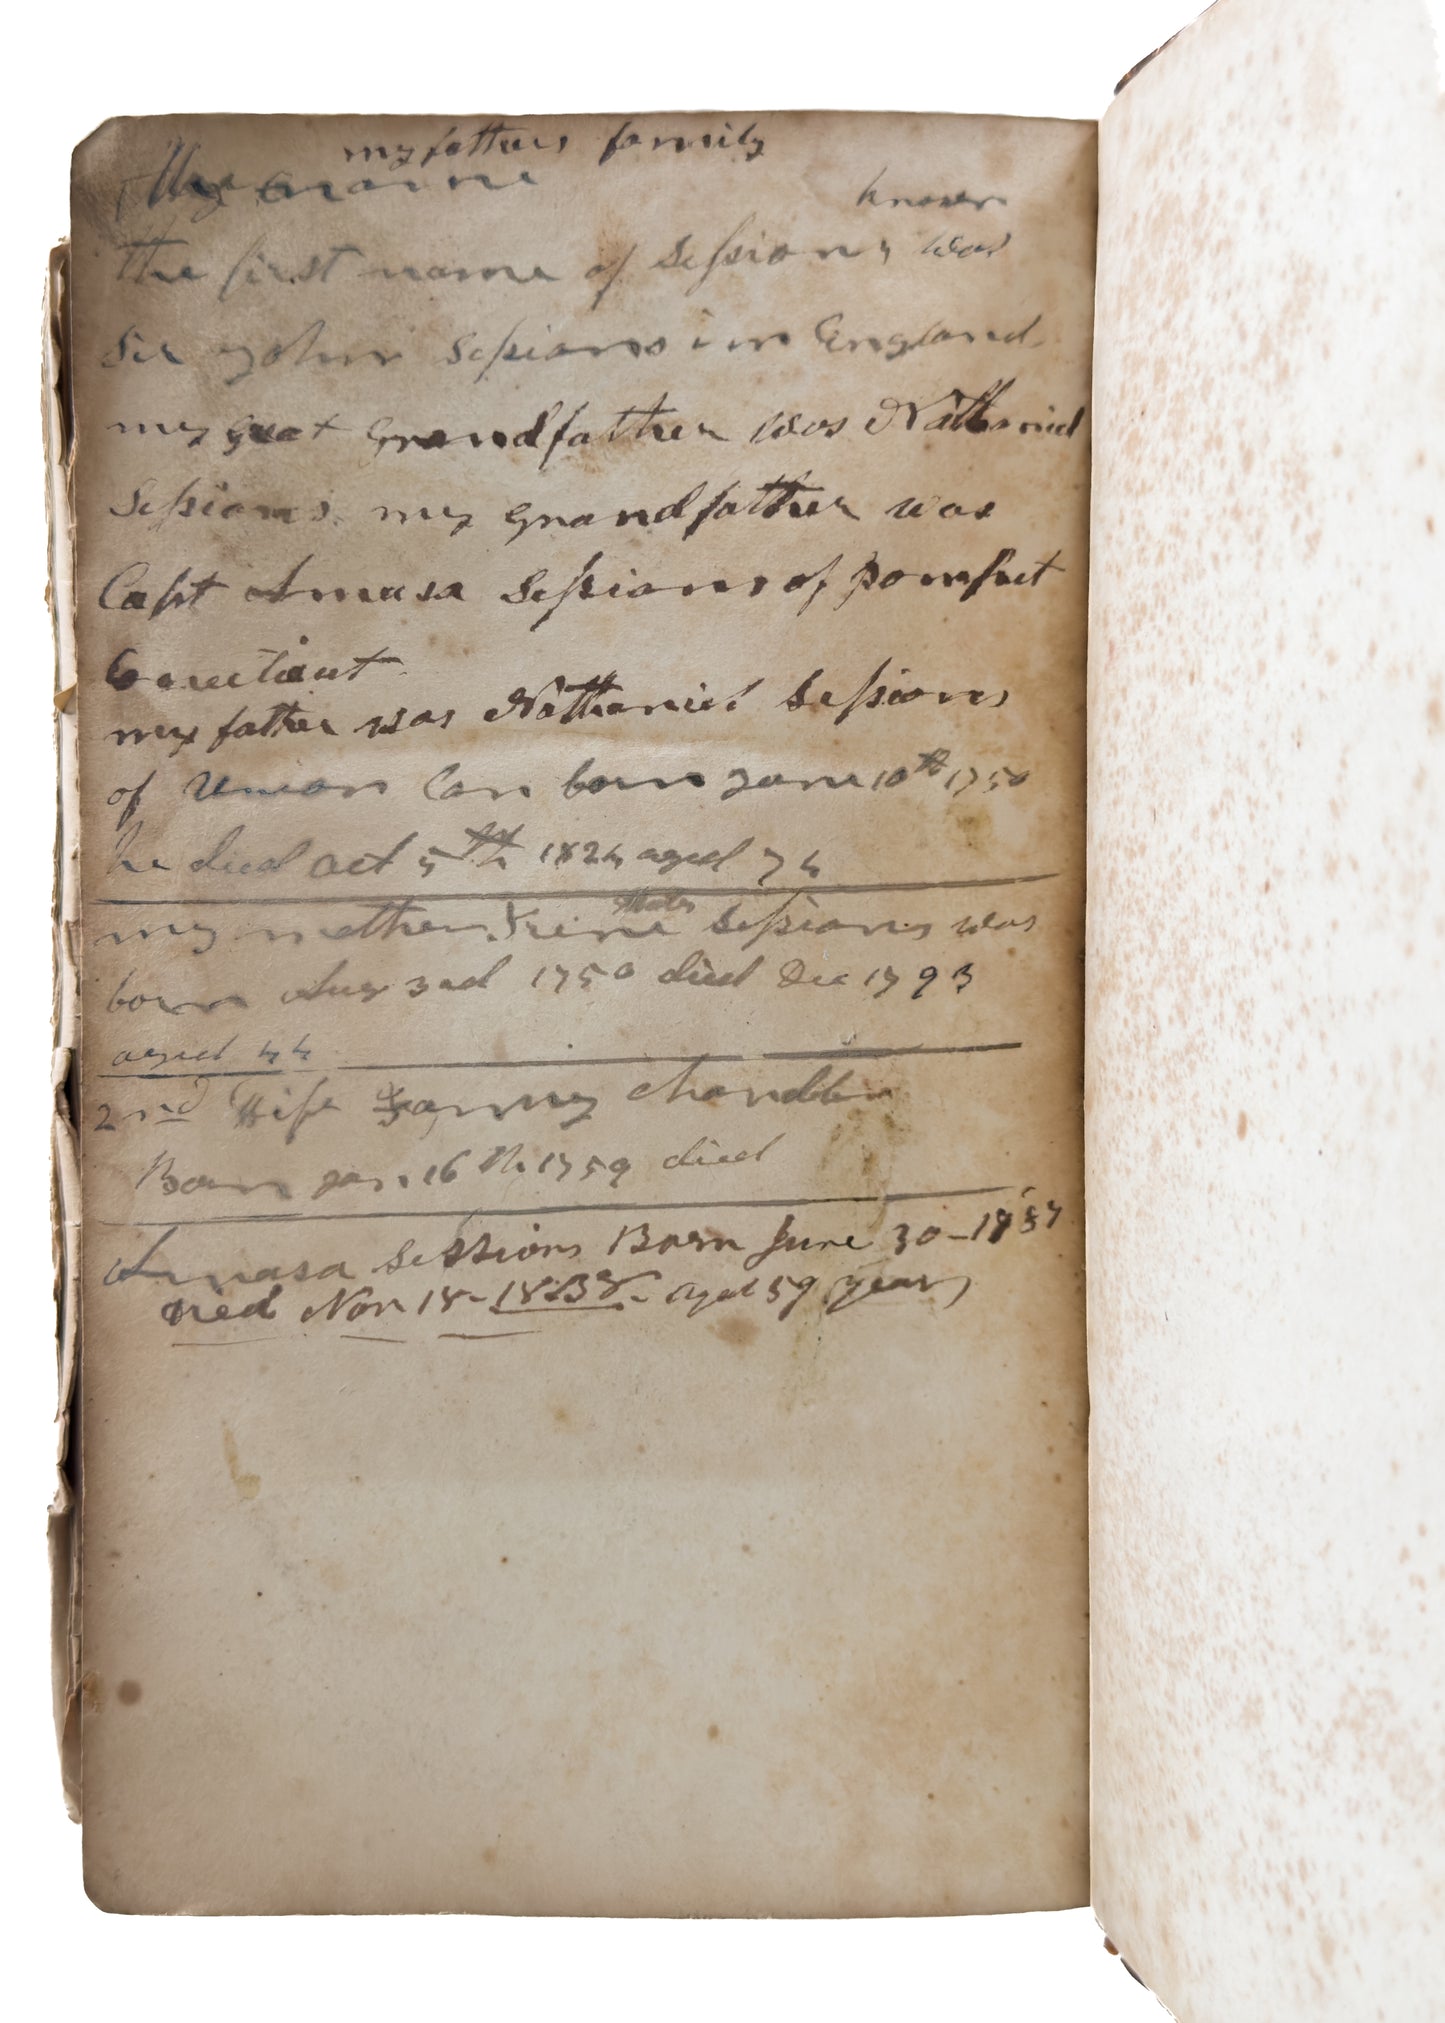 my fathers family
The name
known
the first name of Sessions was
Sir John Sessions in England
my great Grandfather was Nathaniel
Sessions my grandfather was
Capt Amasa Sessions of pomfret
Conecticut
my father was Nathaniel Sessions
of Union Con born June 10th 1750
he died oct 5th 1824 aged 74
my mother Irene Sessions was
born Aug 3rd 1750 died Dec 1793
aged 44
2nd Wife Fanny Chandler
Born Jan 16th 1759 died
Amasa Sessions Born June 30 -
Died Nov 18 - 1838 - aged 59 years